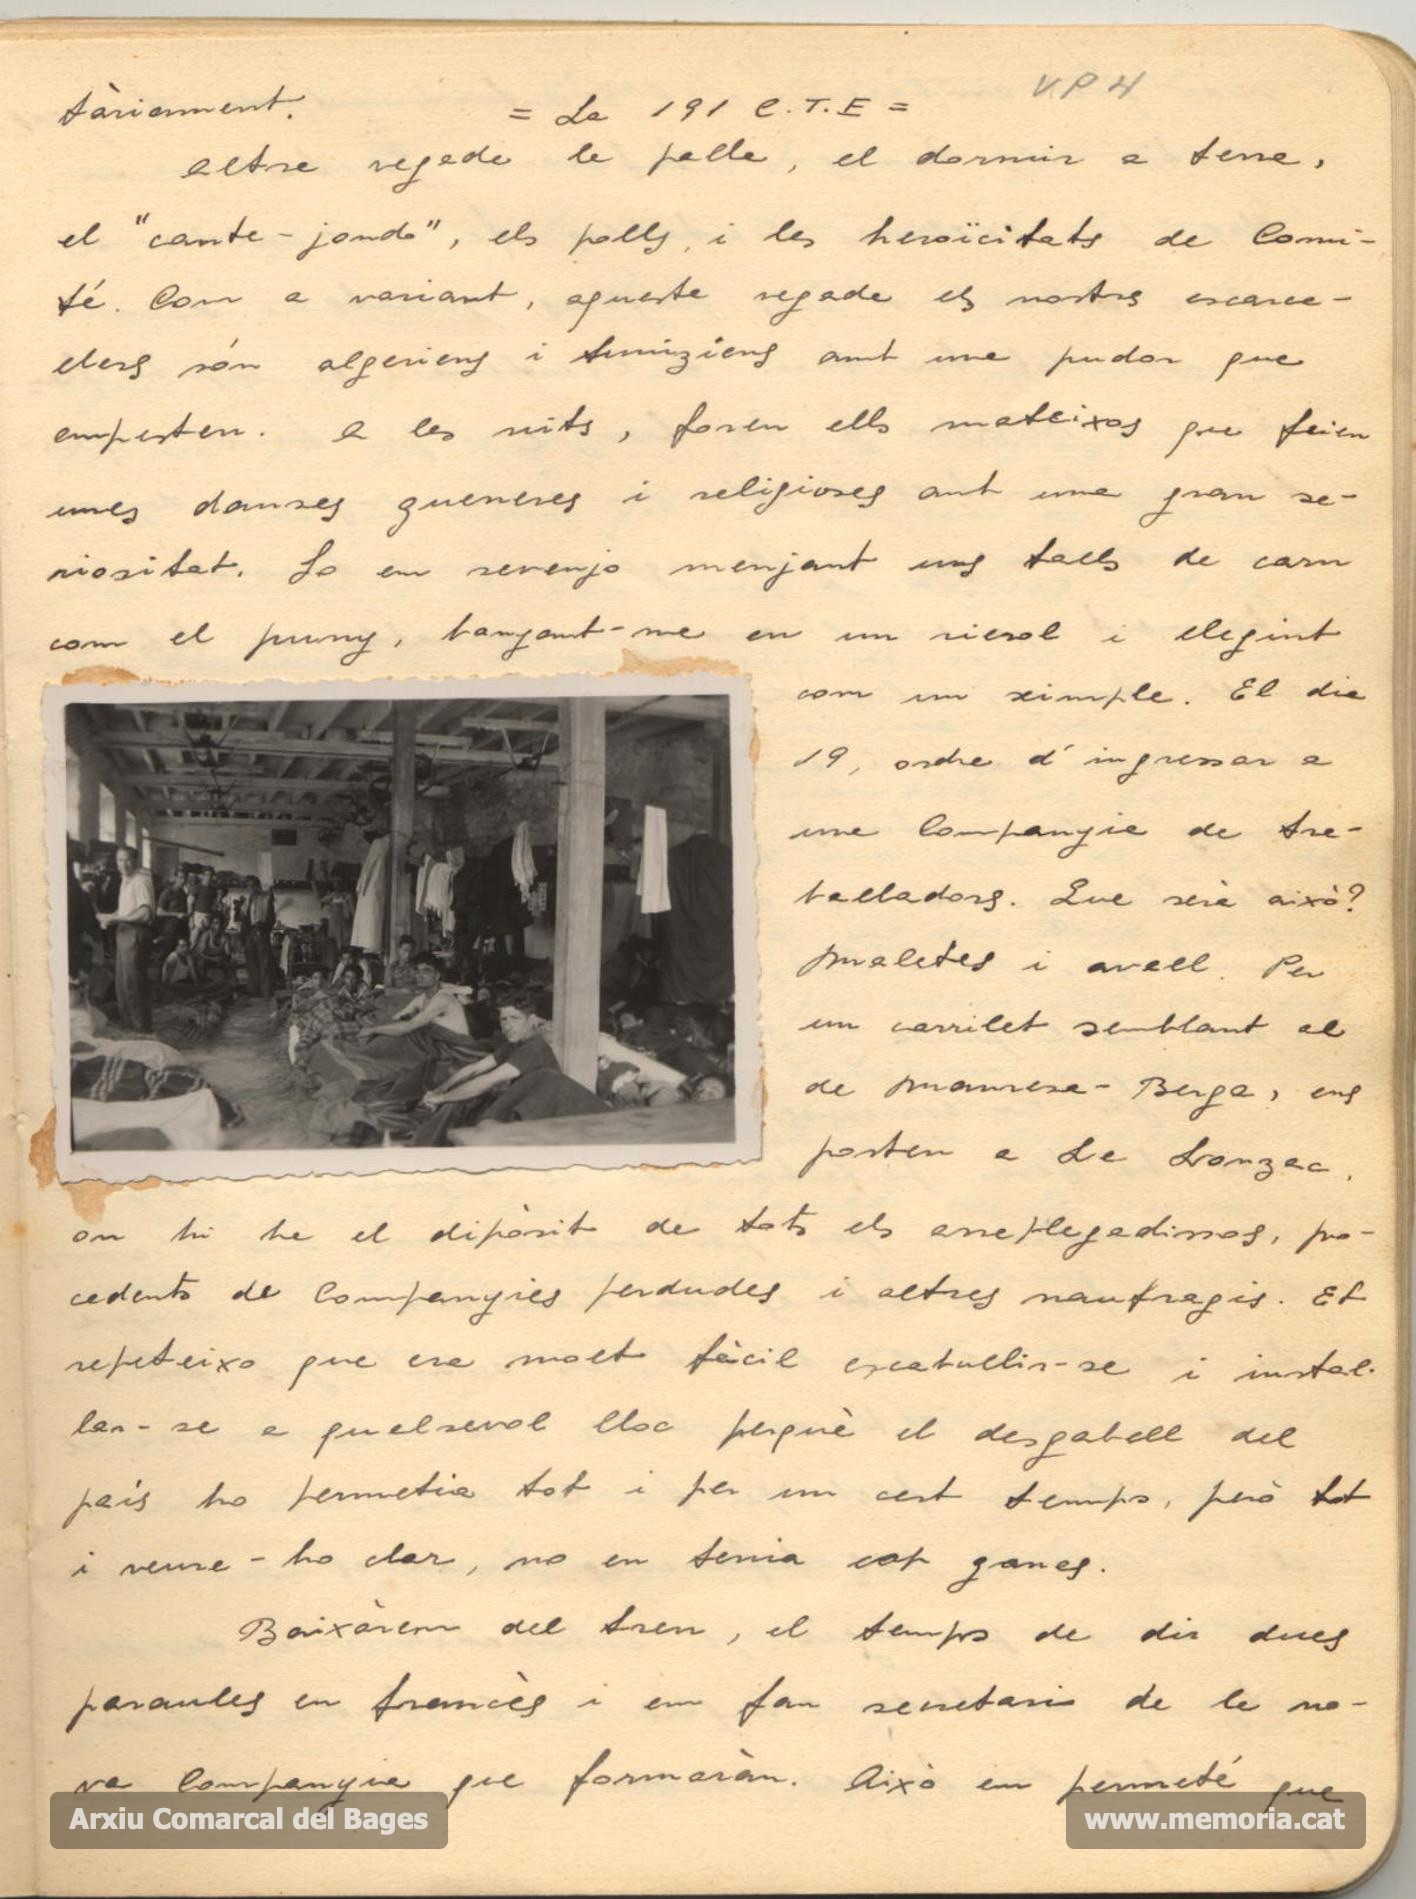 V.P 4
tàriament.
= La 191 C.T.E =
Altre vegada la palla, el dormir a terra,
el "cante-jondo", els polls, i les heroïcitats de Comi-
té. Com a variant, aquesta vegada els nostres escarce-
llers són algeriens i tuniziens amb una pudor que
empesten. A les nits, foren ells mateixos que feien
unes danses guerreres i religioses amb una gran se-
riositat. Jo em revenjo menjant uns talls de carn
com el puny, banyant-me en un rierol i llegint
com un ximple. El dia
19, ordre d'ingressar a
una Companyia de tre-
balladors. Que serà això?
Maletes i avall. Per
un carrilet semblant al
de Manresa-Berga, ens
porten a Le Lonzac,
on hi ha el dipòsit de tots els arreplegadissos, pro-
cedents de Companyies perdudes i altres naufragis. Et
repeteixo que era molt fàcil escabullir-se i instal·
lar-se a qualsevol lloc perquè el desgabell del
país ho permetia tot i per un cert temps, però tot
i veure-ho clar, no en tenia cap ganes.
Baixàrem del tren, el temps de dir dues
paraules en francès i em fan secretari de la no-
va Companyia que formaràn. Això em permeté que
Arxiu Comarcal del Bages
www.memoria.cat